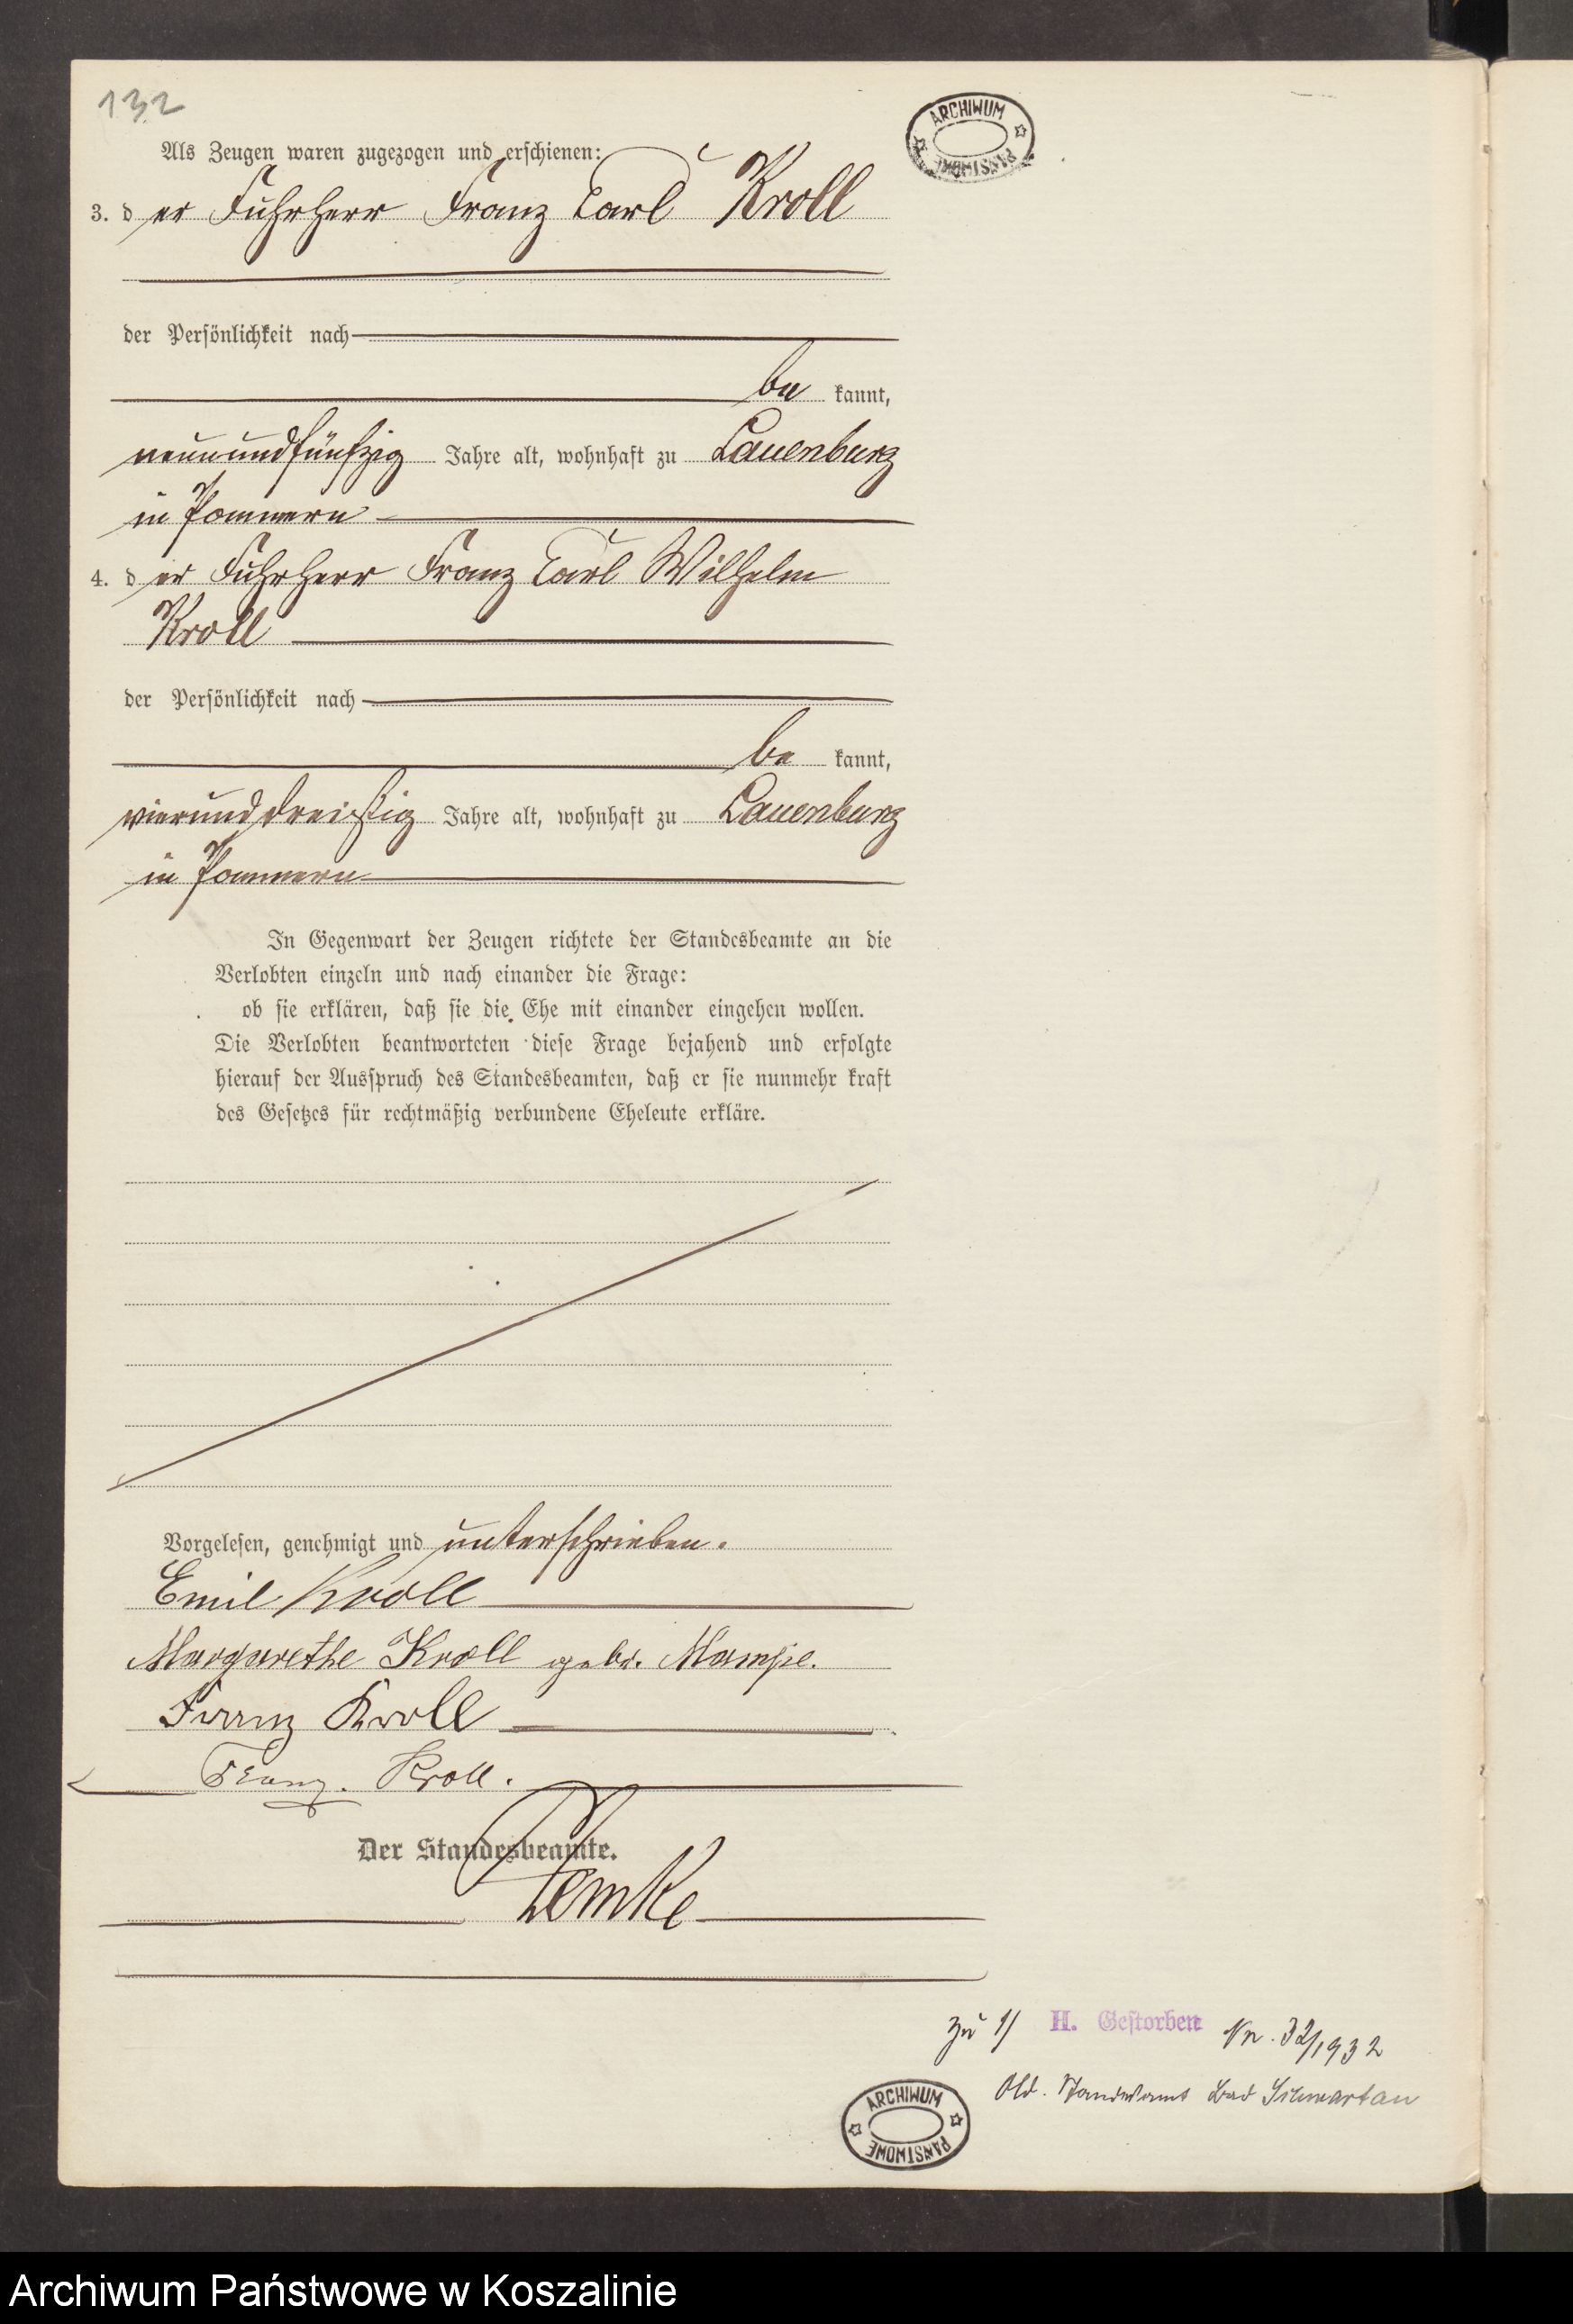 132
ARCHIWUM PAŃSTWOWE
Als Zeugen waren zugezogen und erschienen:
3. der Fuhrherr Franz Carl Kroll
der Persönlichkeit nach
be kannt,
neunundfünfzig Jahre alt, wohnhaft zu Lauenburg
in Pommern
4. der Fuhrherr Franz Carl Wilhelm
Kroll
der Persönlichkeit nach
be kannt,
vierunddreißig Jahre alt, wohnhaft zu Lauenburg
in Pommern
In Gegenwart der Zeugen richtete der Standesbeamte an die
Verlobten einzeln und nach einander die Frage:
ob sie erklären, daß sie die Ehe mit einander eingehen wollen.
Die Verlobten beantworteten diese Frage bejahend und erfolgte
hierauf der Ausspruch des Standesbeamten, daß er sie nunmehr kraft
des Gesetzes für rechtmäßig verbundene Eheleute erkläre.
Vorgelesen, genehmigt und unterschrieben.
Emil Kroll
Margarethe Kroll gebr. Mampe.
Franz Kroll
Franz. Kroll.
Der Standesbeamte.
Lemke
zu 1/ H. Gestorben Nr. 32/1932
Old. Standesamt Bad Schwartau
ARCHIWUM PAŃSTWOWE
Archiwum Państwowe w Koszalinie